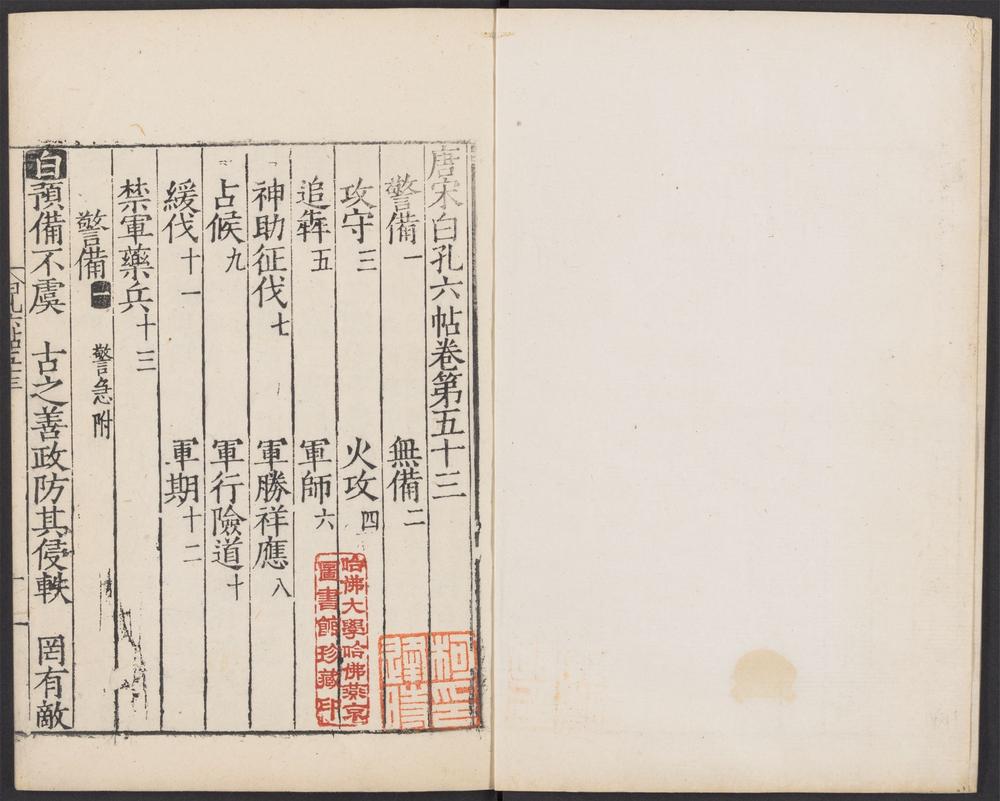 唐宋白孔六帖卷第五十三
警備一 無備二
攻守三 火攻四
追犇五 軍師六
神助征伐七 軍勝祥應八
占候九 軍行險道十
緩伐十一 軍期十二
禁軍藥兵十三
警備一 警急附
白預備不虞 古之善政防其侵軼 罔有敵
哈佛大學哈佛燕京
圖書館珍藏印